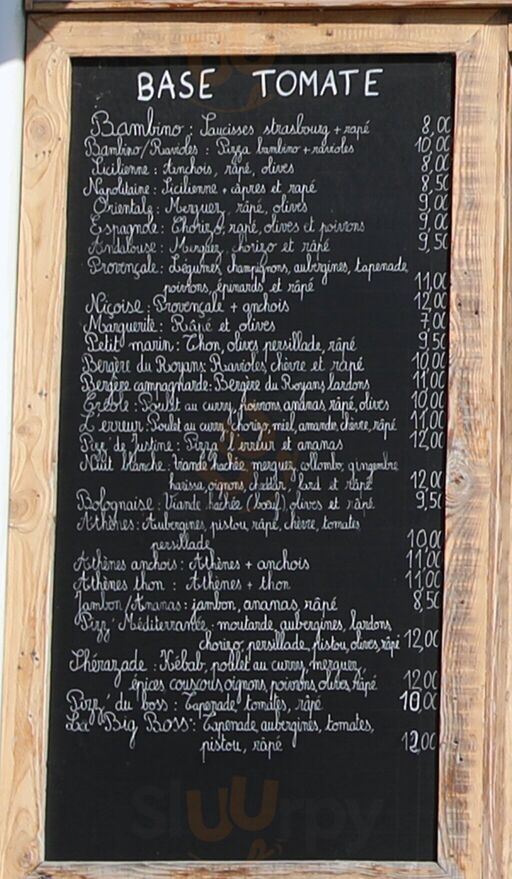 BASE TOMATE
Bambino : Saucisses strasbourg + rapé 8,00
Bambino/Ravioles : Pizza bambino + ravioles 10,00
Sicilienne : Anchois, rapé, olives 8,00
Napolitaine : Sicilienne + câpres et rapé 8,50
Orientale : Merguez, râpé, olives 9,00
Espagnole : Chorizo, rapé, olives et poivrons 9,00
Andalouse : Merguez, chorizo et râpé 9,50
Provençale : Légumes, champignons, aubergines, tapenade,
poivrons, épinards et râpé 11,00
Niçoise : Provençale + anchois 12,00
Marguerite : Râpé et olives 7,00
Petit marin : Thon, olives, persillade, râpé 9,50
Bergère du Royans : Ravioles, chèvre et rapé 10,00
Bergère campagnarde : Bergère du Royans, lardons 11,00
Créole : Poulet au curry, poivrons, ananas, râpé, olives 10,00
L'erreur : Poulet au curry, chorizo, miel, amande, chèvre, râpé 11,00
Pizz' de Justine : Pizza l'erreur et ananas 12,00
Nuit blanche : viande hachée, merguez, collombo, gingembre
harissa, oignons, cheddar, lard et râpé 12,00
Bolognaise : Viande hachée (boeuf), olives et râpé 9,50
Athènes : Aubergines, pistou, râpé, chèvre, tomates
persillade 10,00
Athènes anchois : Athènes + anchois 11,00
Athènes thon : Athènes + thon 11,00
Jambon/Ananas : jambon, ananas, râpé 8,50
Pizz' Méditerranée : moutarde, aubergines, lardons,
chorizo, persillade, pistou, olives, râpé 12,00
Shérazade : Kébab, poulet au curry, merguez,
épices couscous, oignons, poivrons, olives, râpé 12,00
Pizz' du boss : Tapenade, tomates, râpé 10,00
La Big Boss : Tapenade, aubergines, tomates,
pistou, râpé 12,00
sluurpy